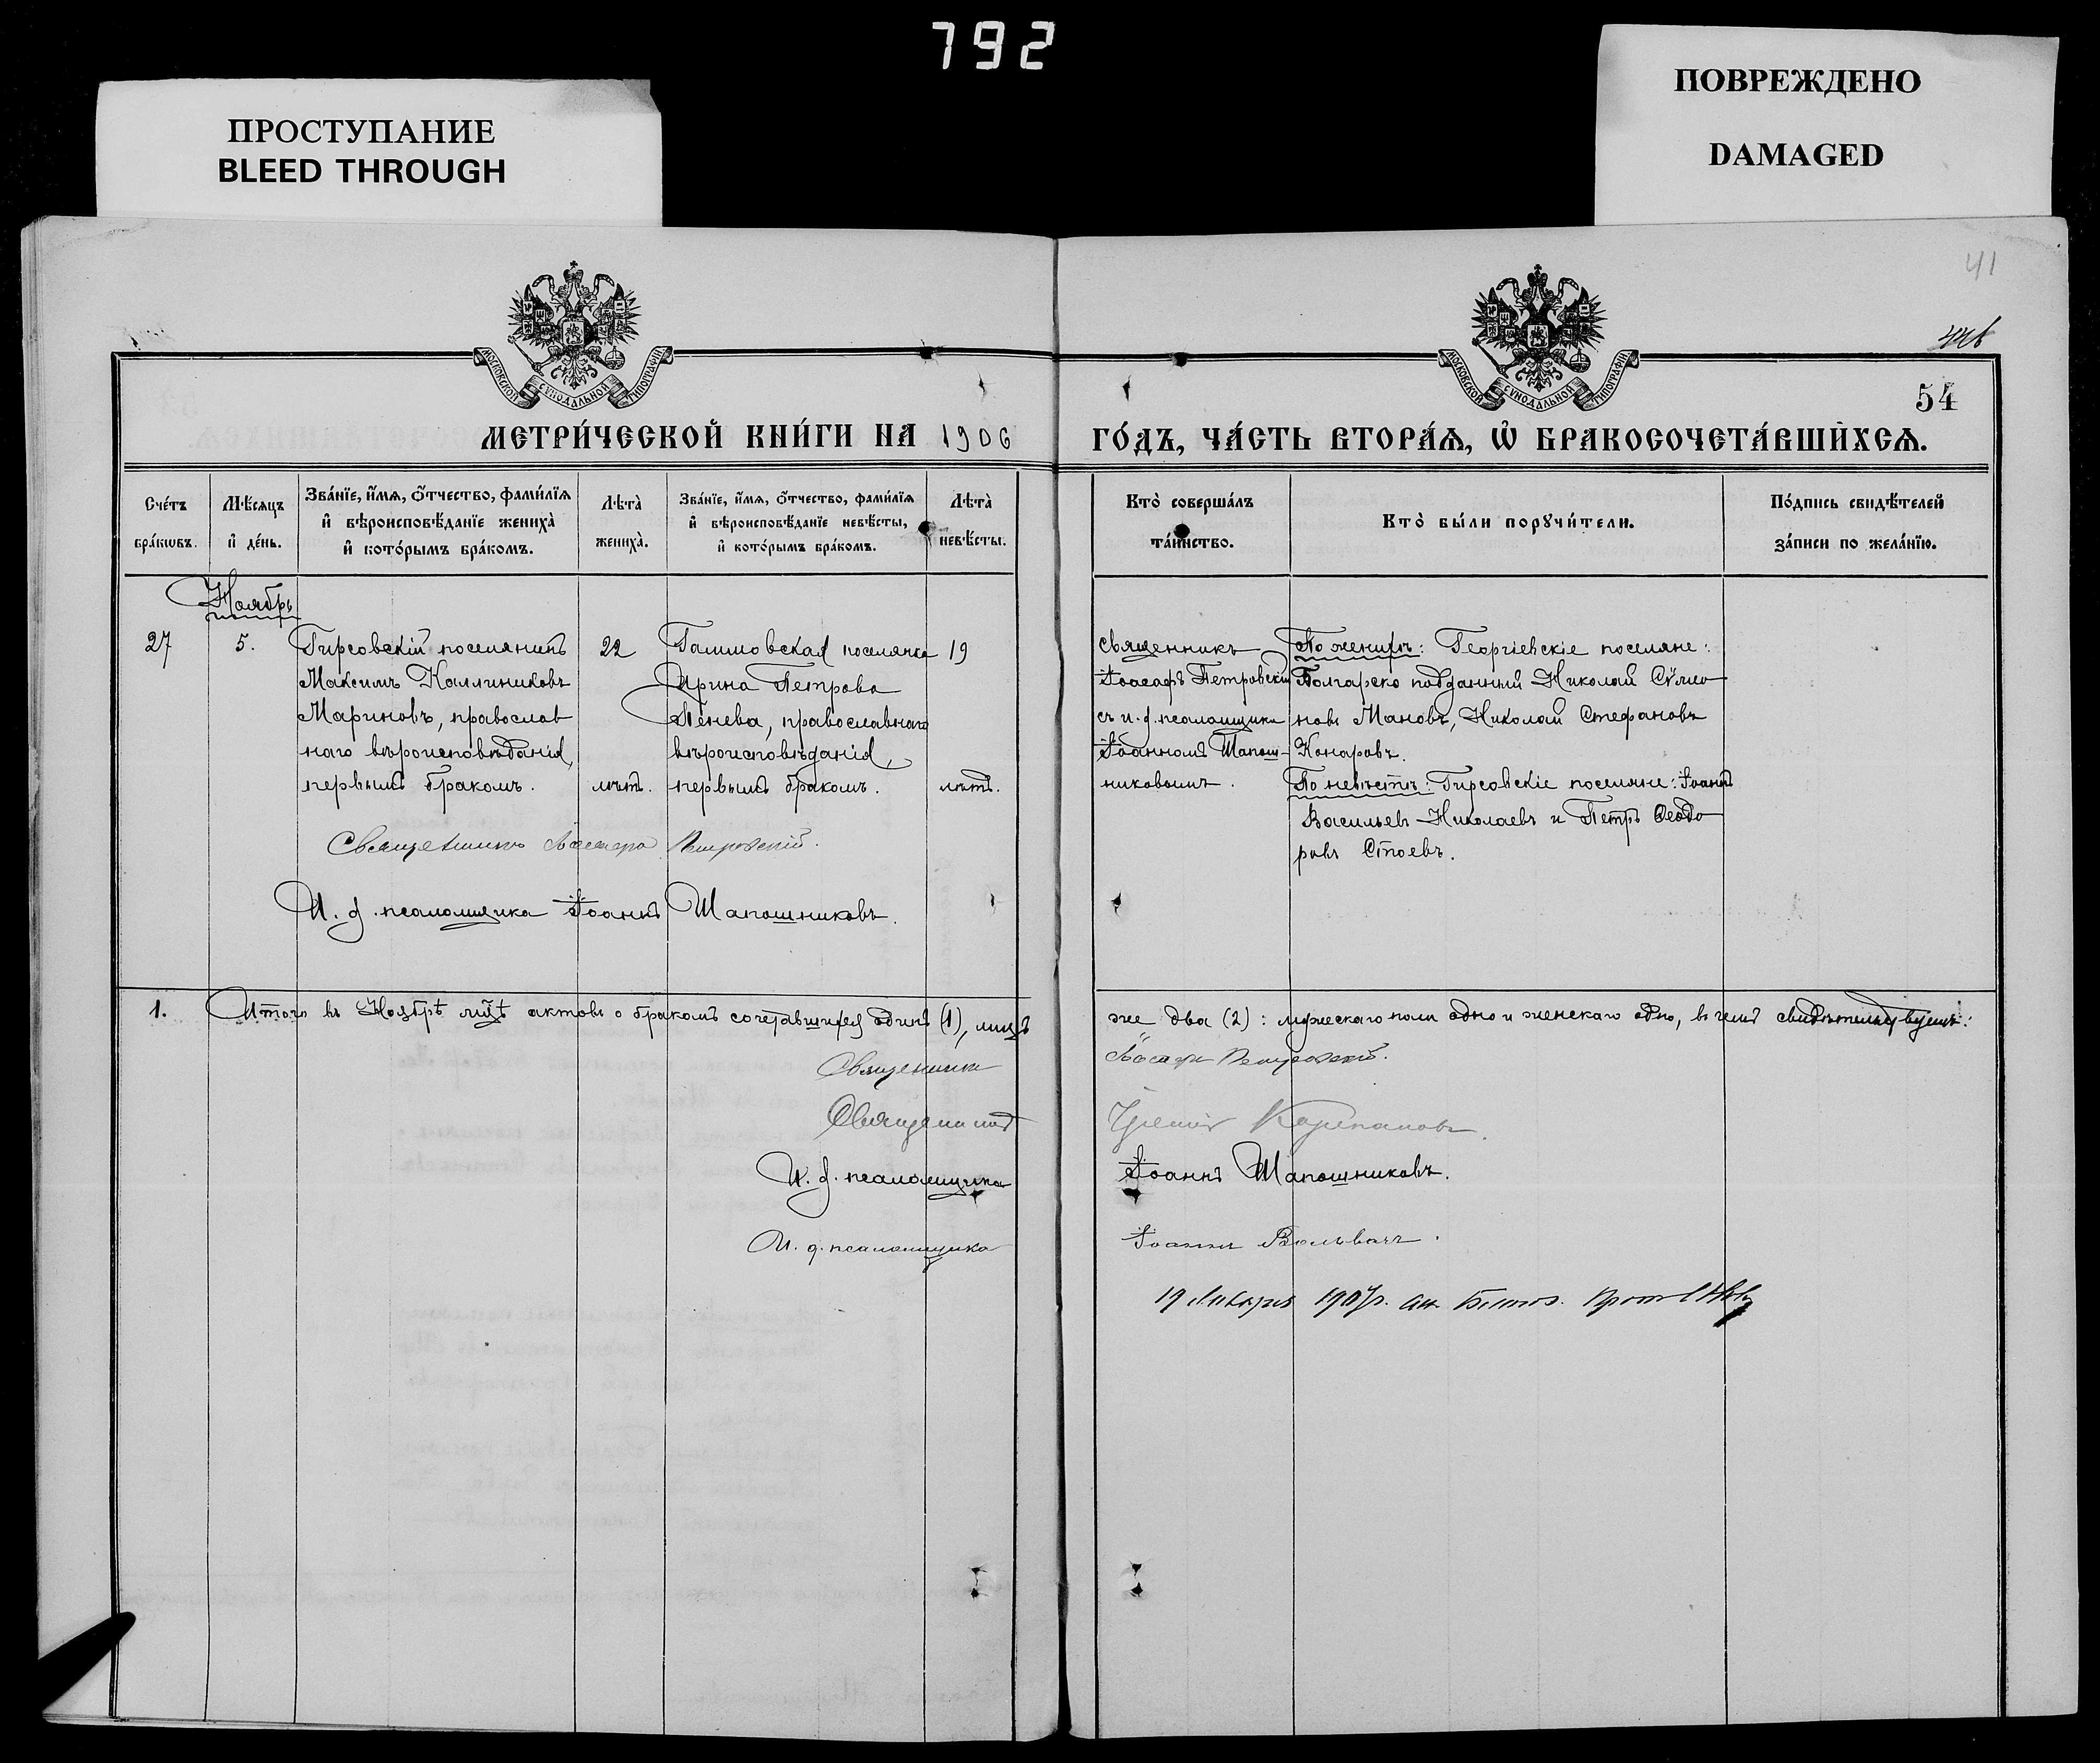 792
ПРОСТУПАНИЕ
BLEED THROUGH
ПОВРЕЖДЕНО
DAMAGED
41
54
МОСКОВСКОЙ СѴНОДАЛЬНОЙ ТИПОГРАФІИ
МОСКОВСКОЙ СѴНОДАЛЬНОЙ ТИПОГРАФІИ
МЕТРИ́ЧЕСКОЙ КНИ́ГИ НА 1906
ГО́ДЪ, ЧА́СТЬ ВТОРА́Я, Ѡ БРАКОСОЧЕТА́ВШИХСЯ.
Сче́тъ бра́кѡвъ.
Мѣ́сяцъ и де́нь.
Зва́нїе, и́мя, ѻ́тчество, фами́лїя
и вѣроисповѣ́данїе жениха̀
и кото́рымъ бра́комъ.
Лѣта̀ жениха̀.
Зва́нїе, и́мя, ѻ́тчество, фами́лїя
и вѣроисповѣ́данїе невѣ́сты,
и кото́рымъ бра́комъ.
Лѣта̀ невѣ́сты.
Кто̀ соверша́лъ
та́инство.
Кто̀ бы́ли порꙋчи́тели.
По́дпись свидѣ́телей
за́писи по жела́нїю.
Ноябрь
27
5.
Гирсовскій поселянинъ
Максимъ Каллиниковъ
Мариновъ, православ
наго вѣроисповѣданія,
первымъ бракомъ.
22
лѣтъ.
поселянка
Ирина Петрова
Пенева, православнаго
вѣроисповѣданія,
первымъ бракомъ.
19
лѣтъ.
Священникъ
Іоасафъ Петровскій
съ и. д. псаломщика
Іоанномъ Шапош-
никовымъ.
По женихѣ: Георгіевскіе поселяне:
Болгарско подданный Николай
новъ Мановъ, Николай Стефановъ
Конаровъ.
По невѣстѣ: Гирсовскіе поселяне: Іоаннъ
Васильевъ Николаевъ и Петръ Ѳеодо
ровъ Стоевъ.
Священникъ Іоасафъ Петровскій.
И. д. псаломщика Іоаннъ Шапошниковъ.
1.
Итого въ Ноябрѣ мцѣ актовъ о бракомъ сочетавшихся одинъ (1), лицъ
же два (2): мужескаго пола одно и женскаго одно, въ чемъ свидѣтельствуемъ:
Священникъ Іоасафъ Петровскій.
Священникъ
И. д. псаломщика Іоаннъ Шапошниковъ.
И. д. псаломщика Іоаннъ
19 Января 1907 г.